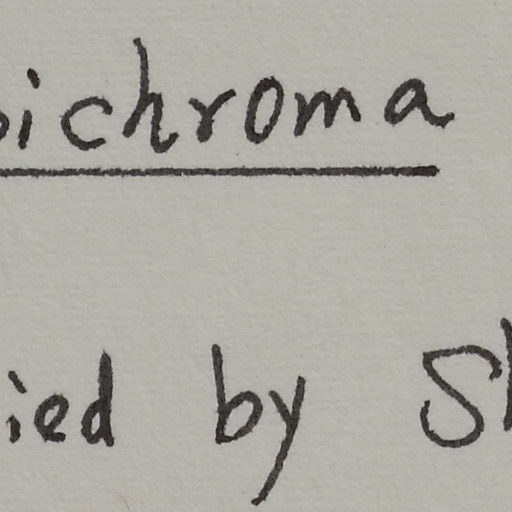 ichroma
ied by S